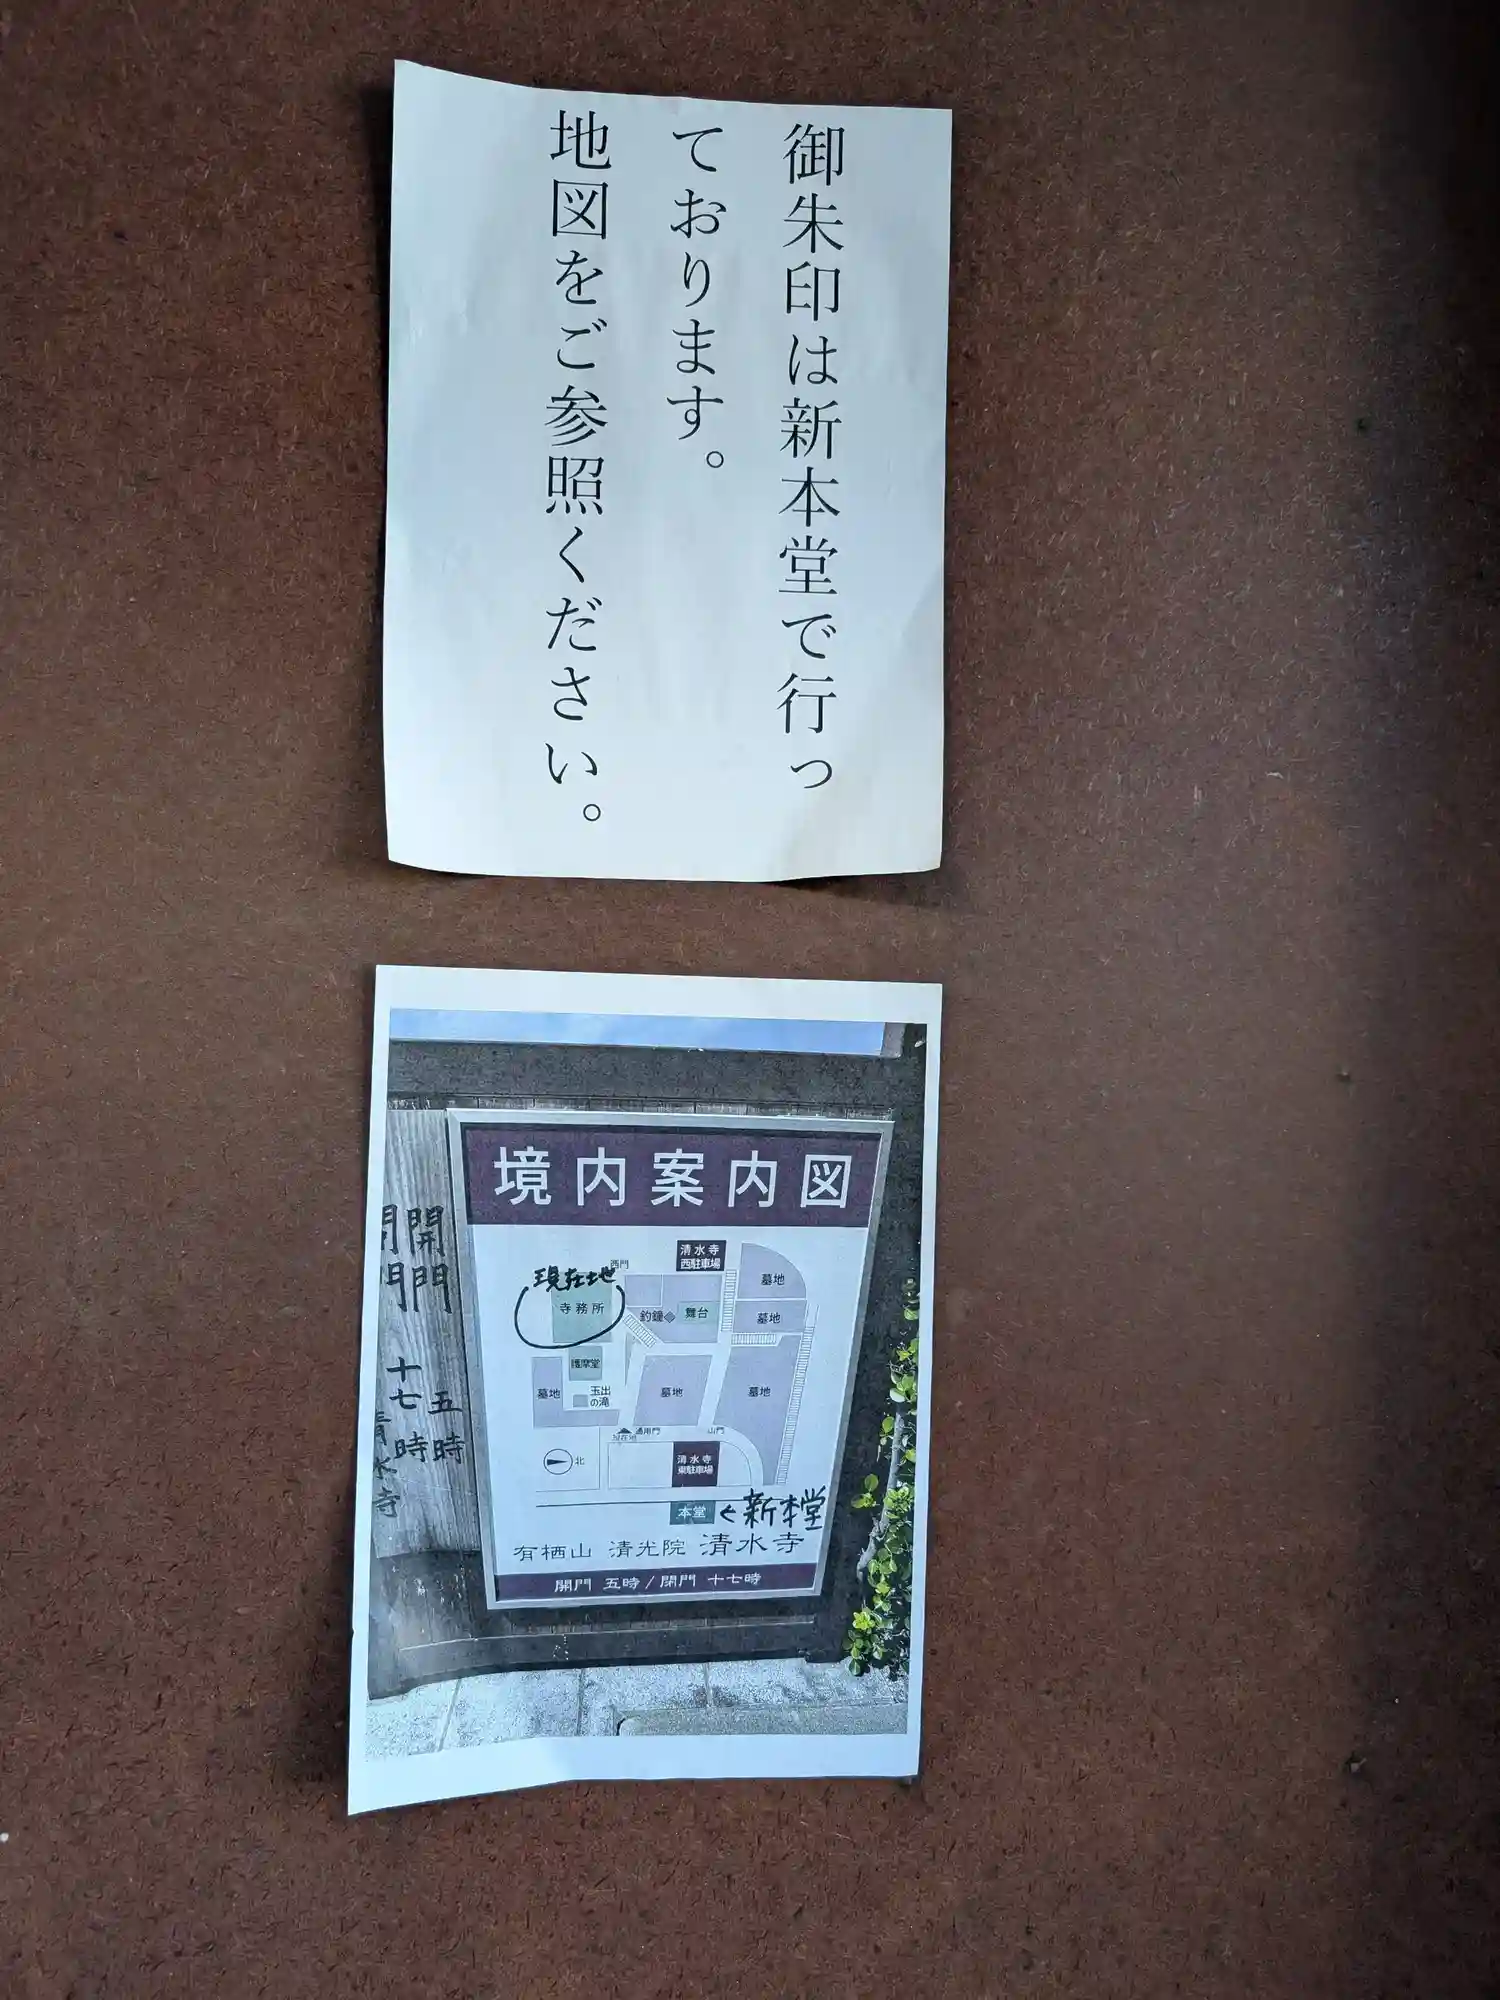 御朱印は新本堂で行っ
ております。
地図をご参照ください。
境内案内図
清水寺
西駐車場
西門
現在地
寺務所
釣鐘
舞台
墓地
墓地
護摩堂
墓地
玉出
の滝
墓地
墓地
現在地
通用門
山門
北
清水寺
東駐車場
本堂
新本堂
有栖山 清光院 清水寺
開門 五時/閉門 十七時
開門 五時
閉門 十七時
清水寺